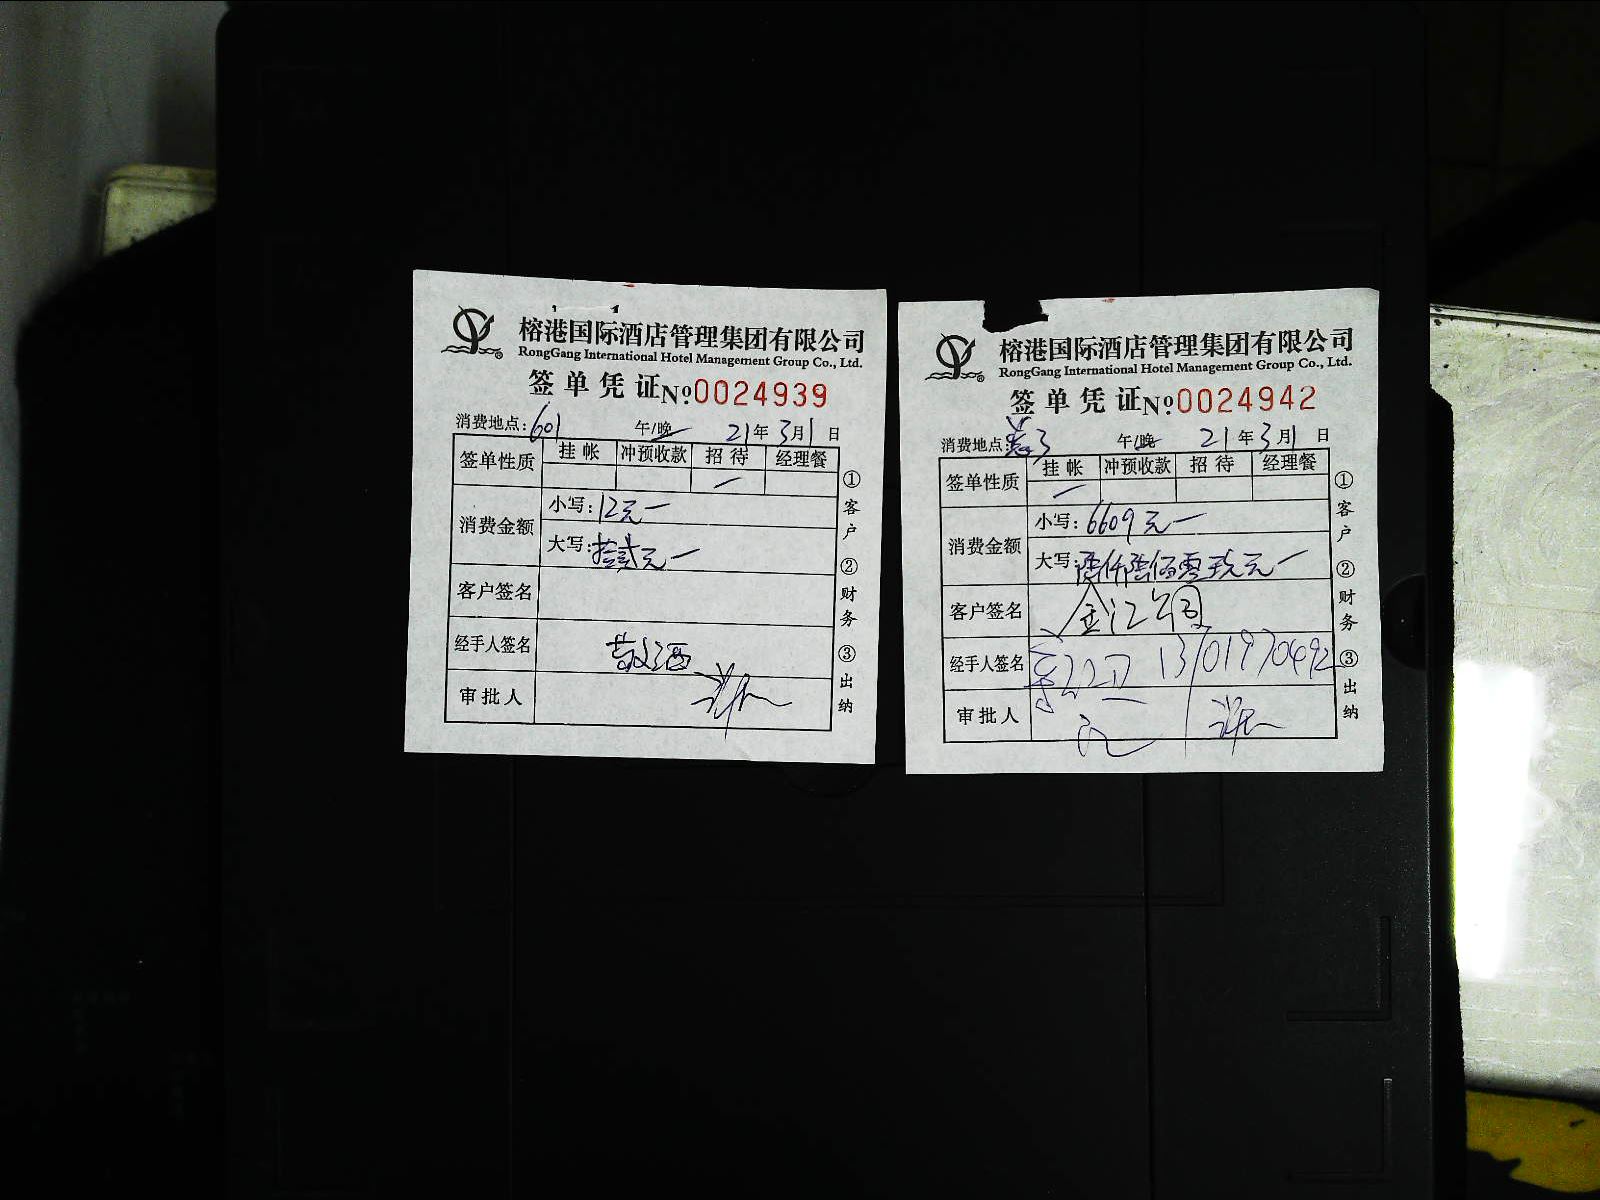 榕港国际酒店管理集团有限公司
RongGang International Hotel Management Group Co., Ltd.
签单凭证 №0024939
消费地点：601 午/晚 21年3月1日
签单性质 挂帐 冲预收款 招待 经理餐
消费金额
小写：12元
大写：拾贰元
客户签名
经手人签名 敬酒
审批人
①客户 ②财务 ③出纳
榕港国际酒店管理集团有限公司
RongGang International Hotel Management Group Co., Ltd.
签单凭证 №0024942
消费地点： 午/晚 21年3月1日
签单性质 挂帐 冲预收款 招待 经理餐
消费金额
小写：6609元
大写：陆仟陆佰零玖元
客户签名 金江公司
经手人签名 13701970492
审批人
①客户 ②财务 ③出纳